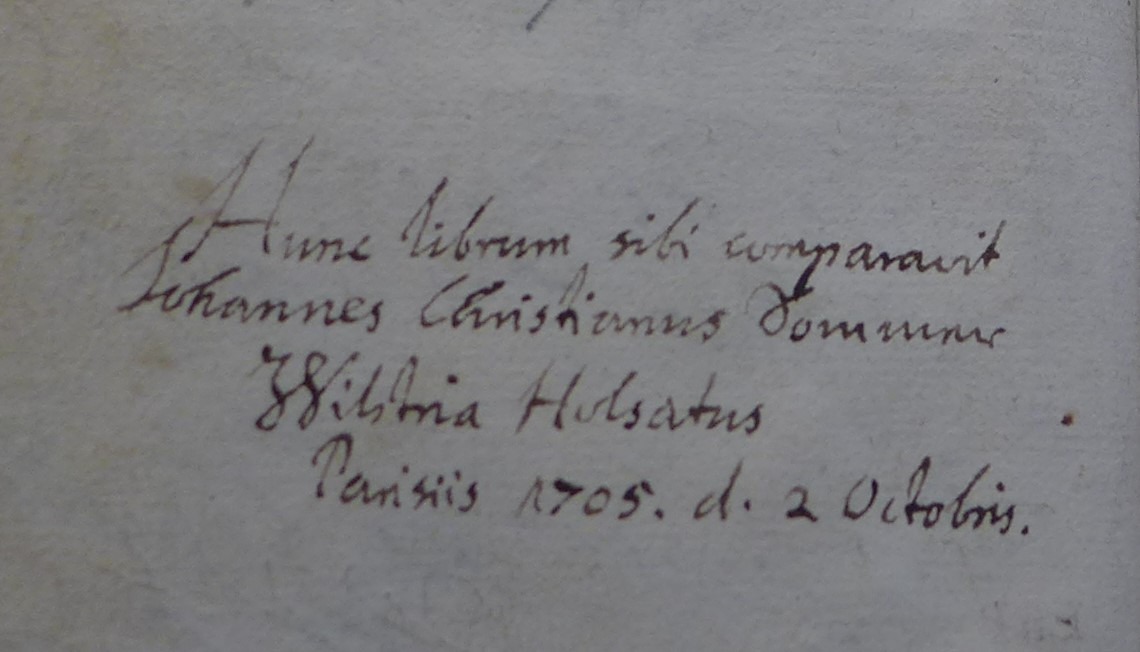 Hunc librum sibi comparavit
Johannes Christianus Sommer
Wilstria Holsatus
Parisiis 1705. d. 2 Octobris.